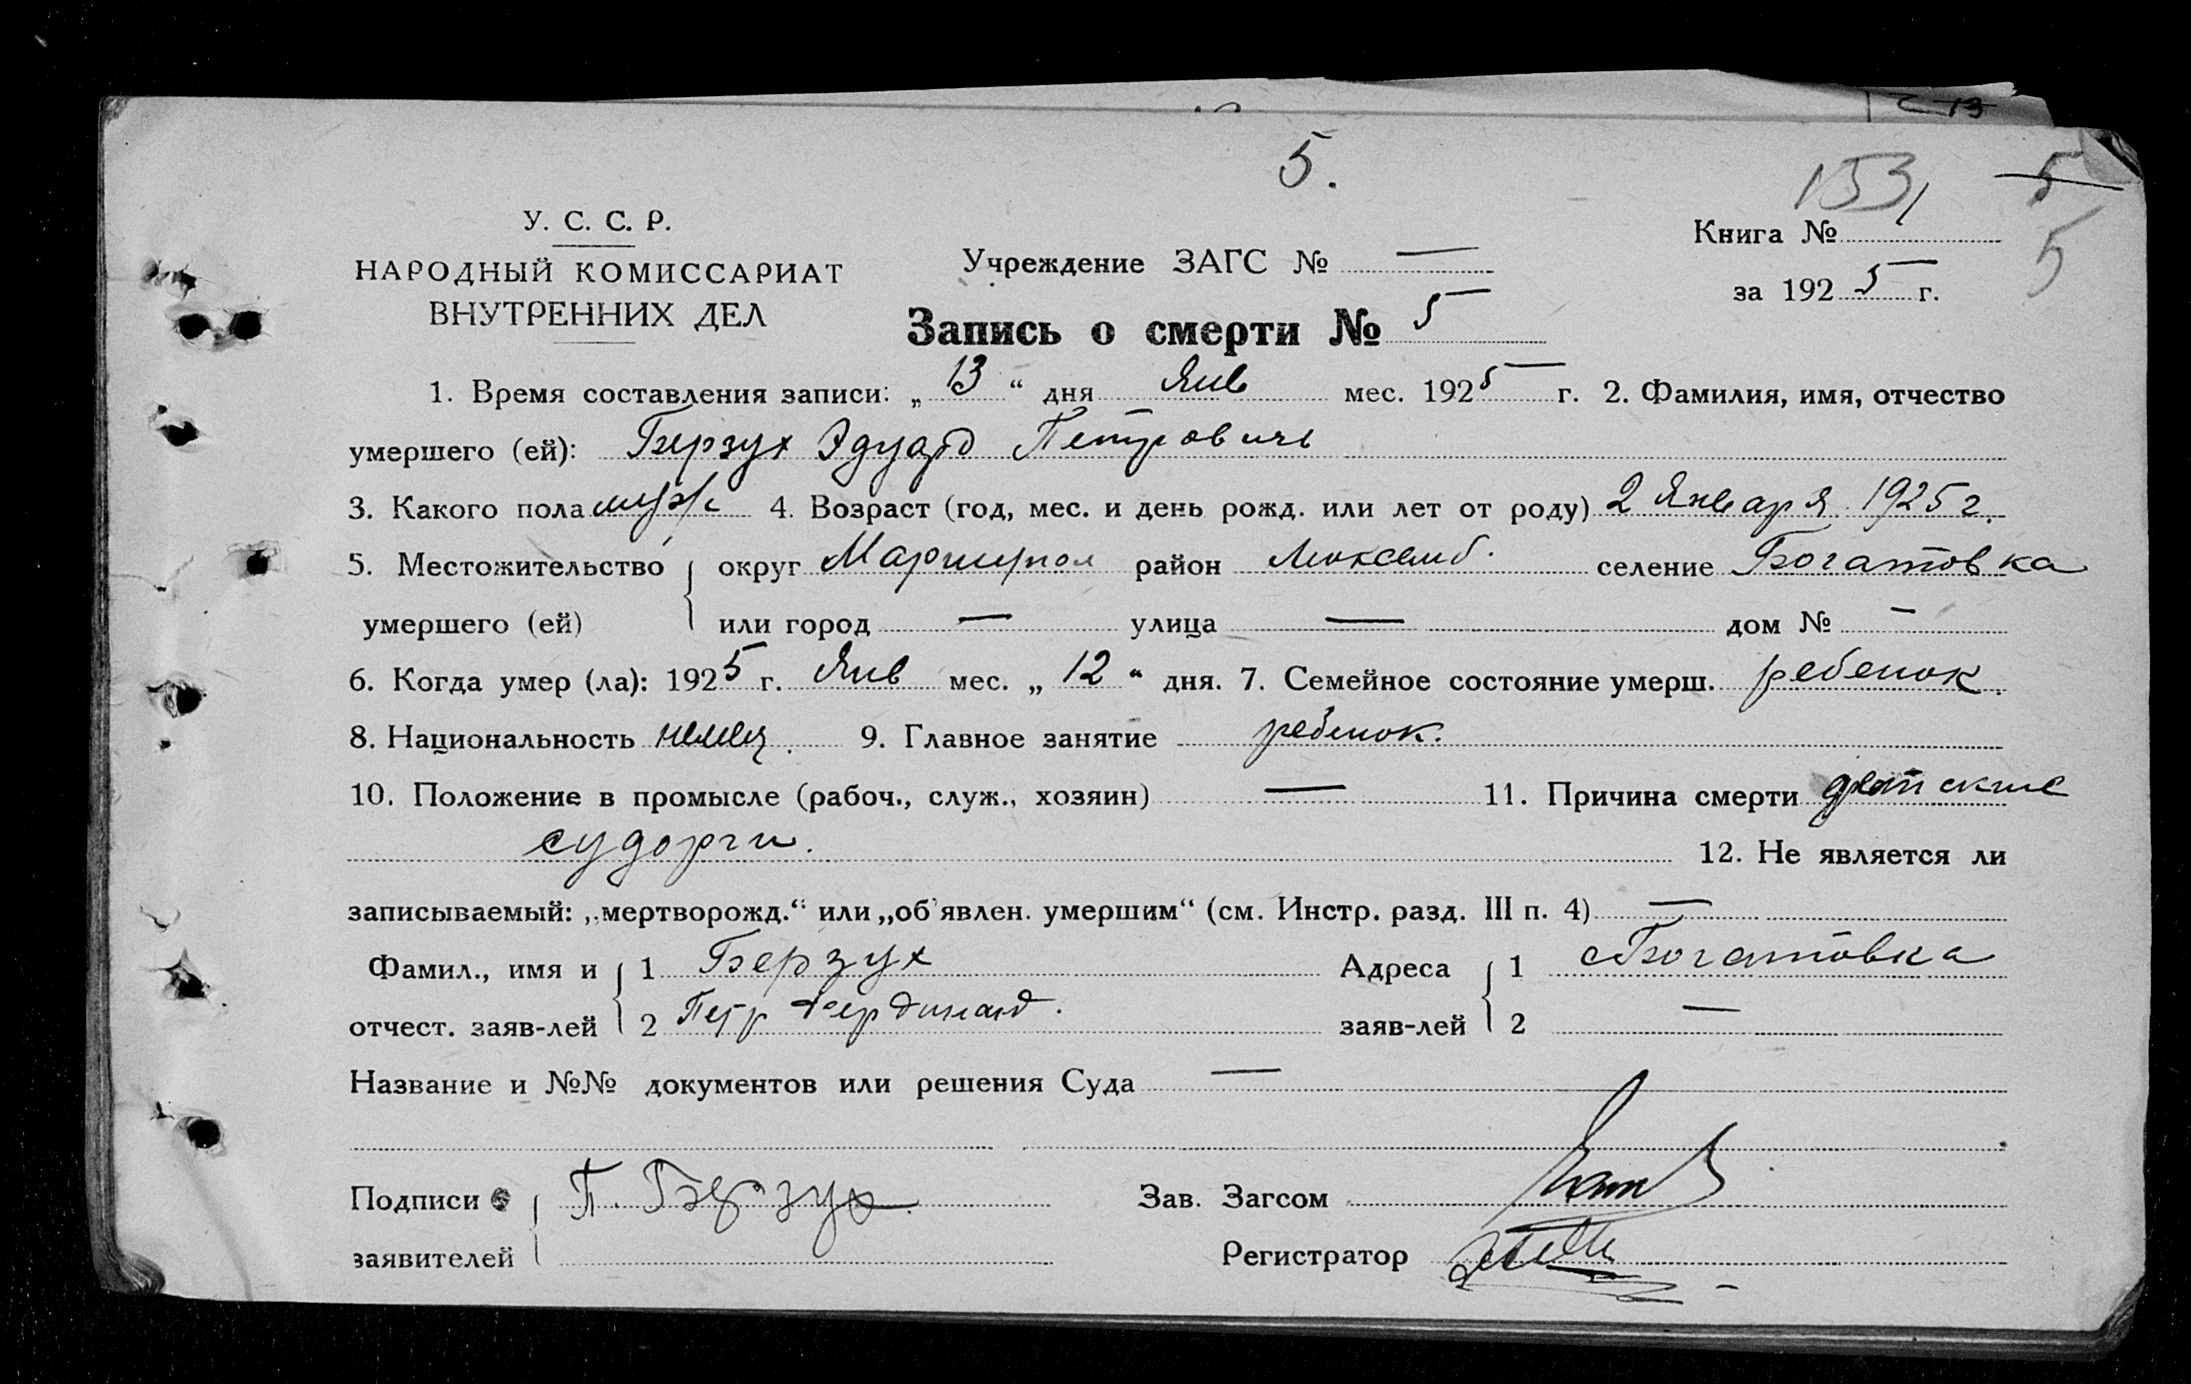 5.
153 5
У. С. С. Р.
Книга №
5
НАРОДНЫЙ КОМИССАРИАТ
ВНУТРЕННИХ ДЕЛ
Учреждение ЗАГС № —
за 1925 г.
Запись о смерти № 5
1. Время составления записи: „13“ дня Янв мес. 1925 г. 2. Фамилия, имя, отчество
умершего (ей): Берзух Эдуард Петрович
3. Какого пола муж 4. Возраст (год, мес. и день рожд. или лет от роду) 2 Января 1925 г.
5. Местожительство округ Мариупол район Люксемб. селение Богатовка
умершего (ей) или город — улица — дом № —
6. Когда умер (ла): 1925 г. Янв мес. „12“ дня. 7. Семейное состояние умерш. ребенок.
8. Национальность немец. 9. Главное занятие ребенок.
10. Положение в промысле (рабоч., служ., хозяин) — 11. Причина смерти детские
судорги. 12. Не является ли
записываемый: „мертворожд.“ или „об'явлен. умершим“ (см. Инстр. разд. III п. 4) —
Фамил., имя и 1 Берзух Адреса 1 с Богатовка
отчест. заяв-лей 2 Петр Фердинанд. заяв-лей 2 —
Название и №№ документов или решения Суда —
Подписи П. Берзух Зав. Загсом
заявителей Регистратор